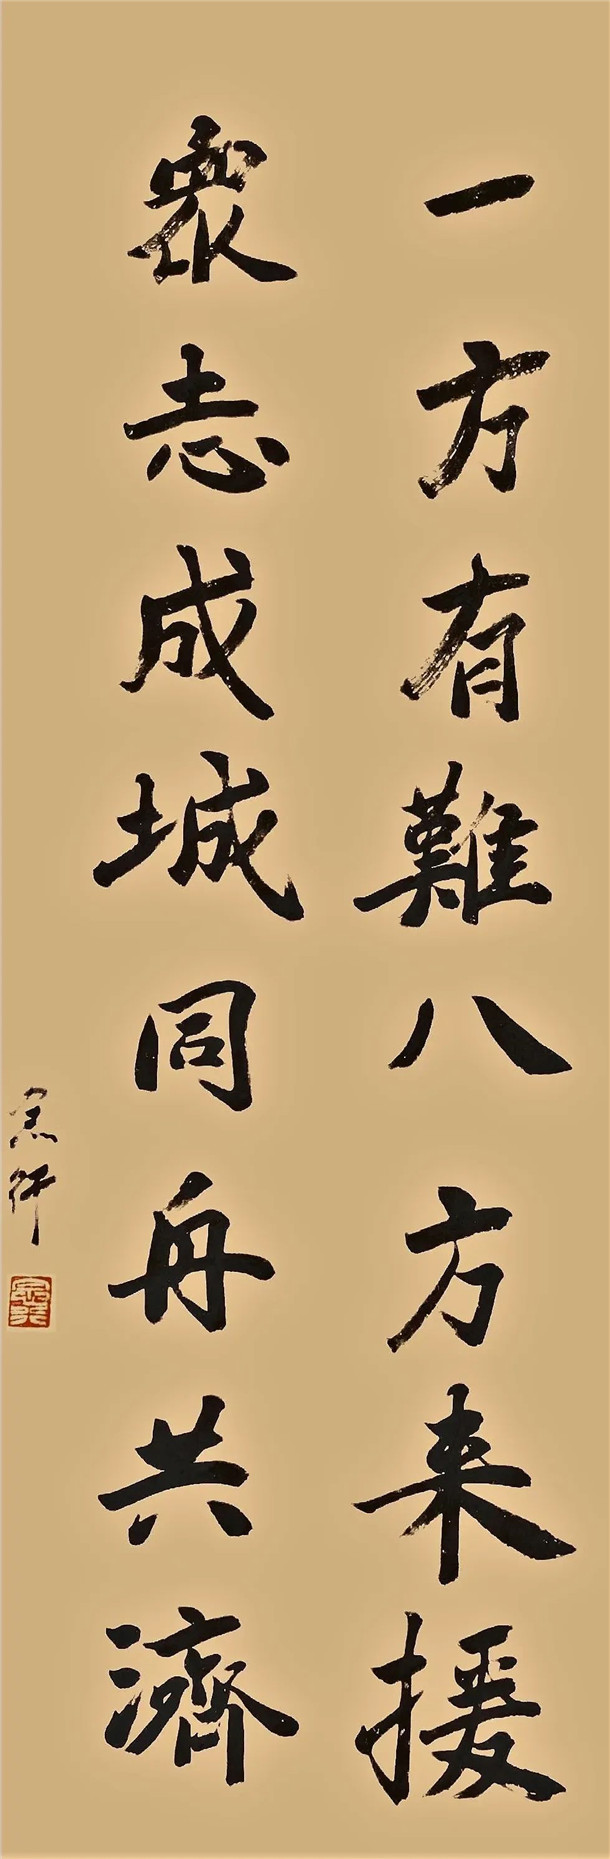 一方有難八方来援
衆志成城同舟共濟